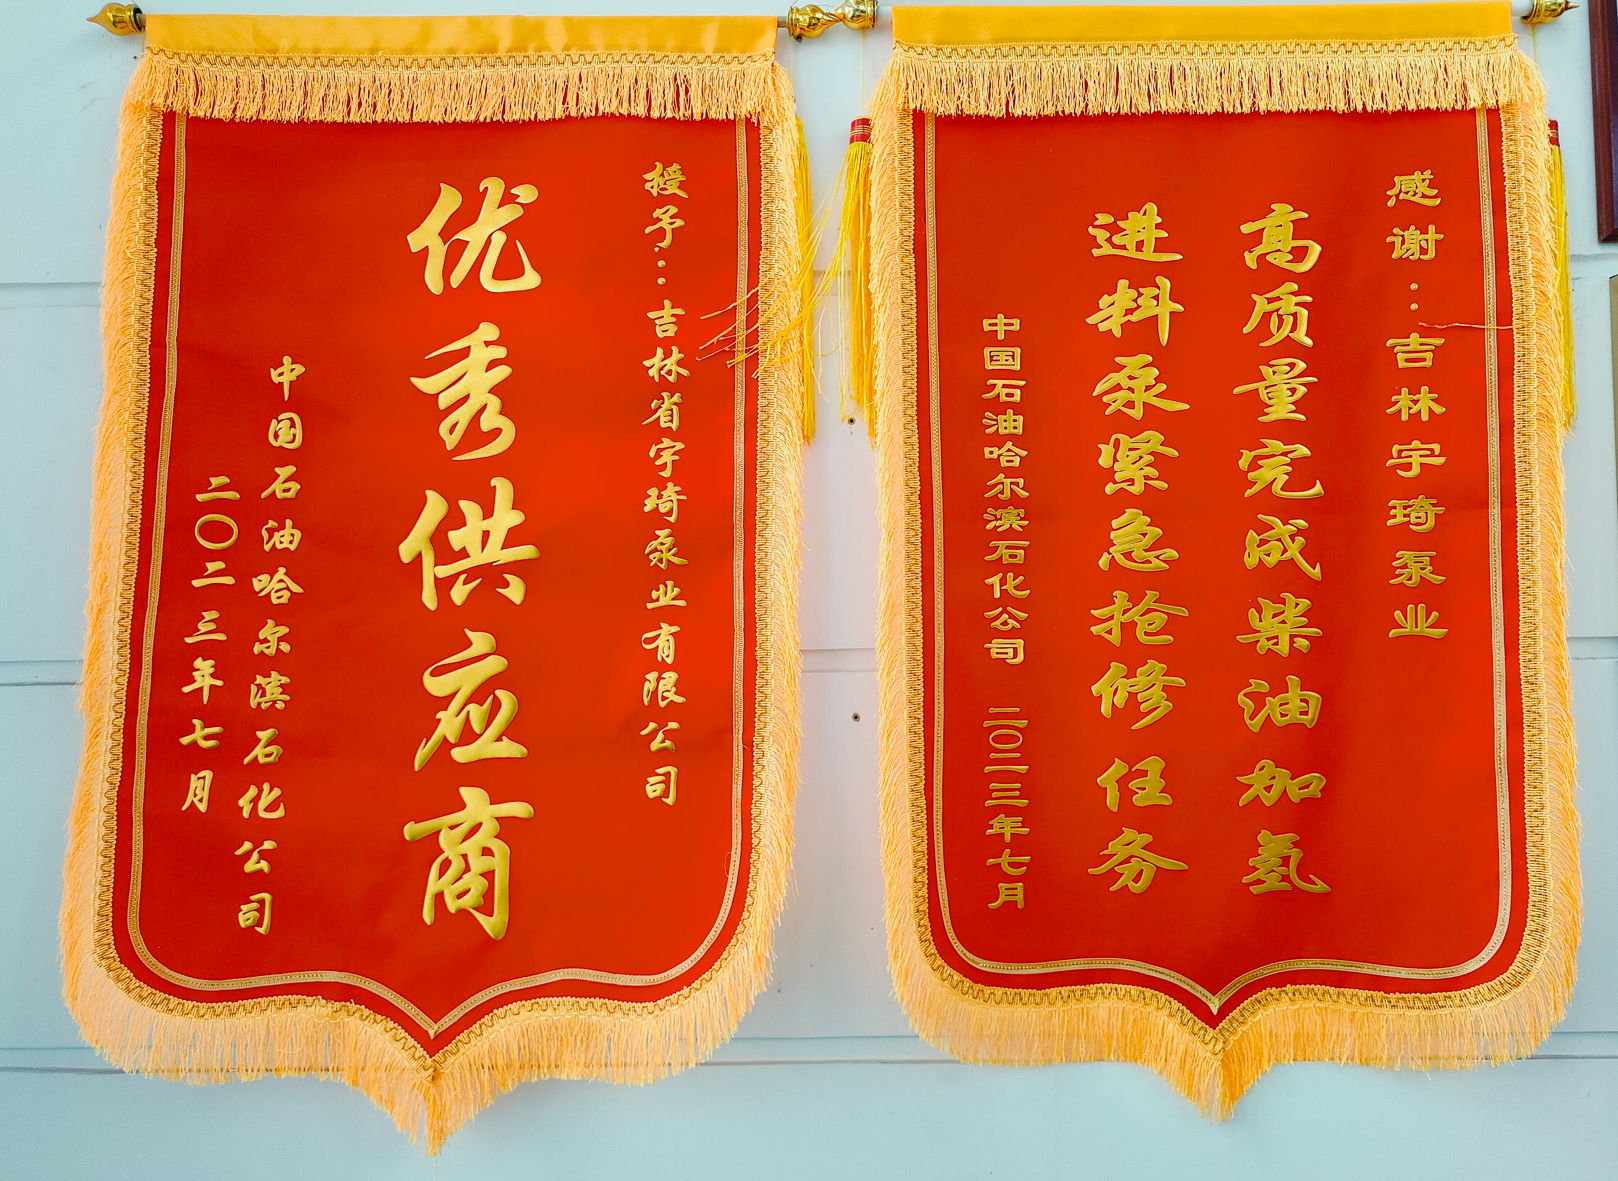 授予：吉林省宇琦泵业有限公司
优秀供应商
中国石油哈尔滨石化公司
二〇二三年七月
感谢：吉林宇琦泵业
高质量完成柴油加氢
进料泵紧急抢修任务
中国石油哈尔滨石化公司 二〇二三年七月